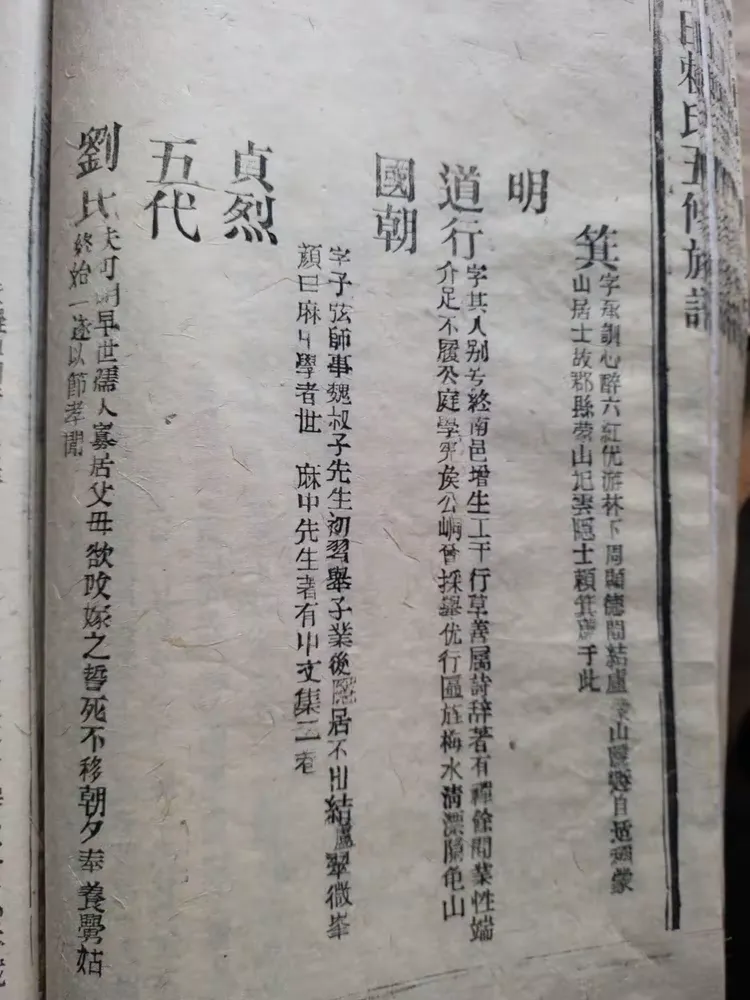 賴氏五修族譜
箕
字承訓心醉六紅优游林下周顯德間結廬蒙山隱遯自适稱蒙
山居士故郡縣蒙山記雲隱士頼箕廬于此
明
道行
字其人别号終南邑增生工于行草善属詩辞著有禪餘閒業性端
介足不履公庭學憲侯公峒曾採舉优行匾旌梅水清漂隴龟山
國朝
字子弦師事魏叔子先生初習舉子業後隱居不出結廬翠微峯
顔曰麻中學者世 麻中先生者有中文集二卷
貞烈
五代
劉氏
夫可明早世孺人寡居父毋欲攺嫁之誓死不移朝夕奉養舅姑
終始一遂以節孝聞